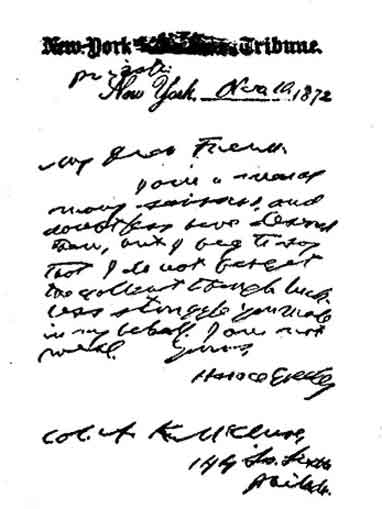 New-York Tribune.
private.
New York, Nov. 10, 1872
My Dear Friend:
I am a man of
many sorrows, and
doubtless have deserved
them, but I beg to say
that I do not forget
the gallant though luck-
less struggle you made
in my behalf. I am not
well. Yours,
Horace Greeley
Col. A. K. McClure,
144 So. Sixth
Philada.